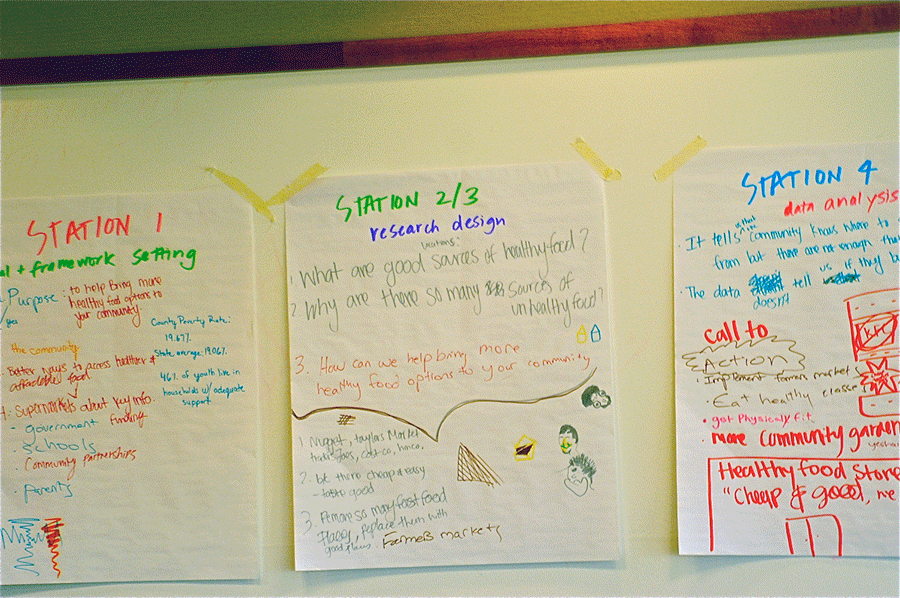 STATION 1
+ framework setting
Purpose: to help bring more
healthy food options to
your community
County Poverty Rate:
19.67%
State average: 19.06%
the community
Better ways to access healthier &
affordable food
46% of youth live in
households w/ adequate
support
about key info.
- government funding
- schools
- Community partnerships
- Parents
STATION 2/3
research design
1. What are good sources of healthy food?
2. Why are there so many sources of
unhealthy food?
3. How can we help bring more
healthy food options to your community
1. Nugget, taylors Market
trader Joes, costco,
2. b/c there cheap & easy
- taste good
3. Remove so many fast food
places, replace them with
good places. Farmers markets
STATION 4
data analysis
· It tells community knows where to
from but there are not enough tha
· The data doesn't tell us if they bu
call to
ACTION
· Implement farmers market
· Eat healthy classe
· got Physically fit
· more community garden
Healthy food Store
"Cheap & good, we